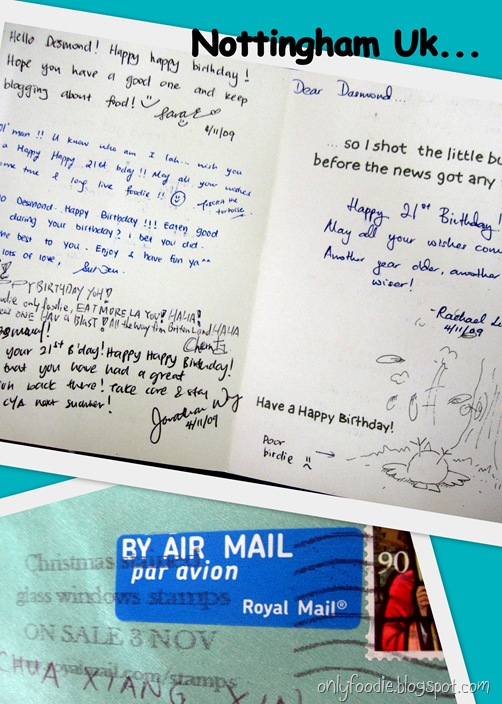 Nottingham Uk...
Hello Desmond! Happy happy birthday!
Hope you have a good one and keep
blogging about food!
Sara
4/11/09
man !! U know who am I lah... wish you
a Happy Happy 21st bday!! May all your wishes
come true & long live foodie !!
tortoise.
Desmond. Happy Birthday!!! Eaten good
during your birthday? I bet you did.
the best to you. Enjoy & have fun ya^^
lots of love!
BIRTHDAY YOH!
only foodie, EAT MORE LA YOU! HAHA!
ONE HAV a BLAST! All the way from Britton Land HAHA
your 21st B'day! Happy Happy Birthday!
that you have had a great
back there! Take care & stay
CYA next summer!
Jonathan
4/11/09
Dear Desmond...
... so I shot the little bu
before the news got any
Happy 21st Birthday!
May all your wishes com
Another year older, another
wiser!
-Rachael
4/11/09
Have a Happy Birthday!
Poor
birdie
BY AIR MAIL
par avion
Royal Mail®
90
Christmas stained
glass windows stamps
ON SALE 3 NOV
royalmail.com/stamps
CHUA XIANG XIN
onlyfoodie.blogspot.com